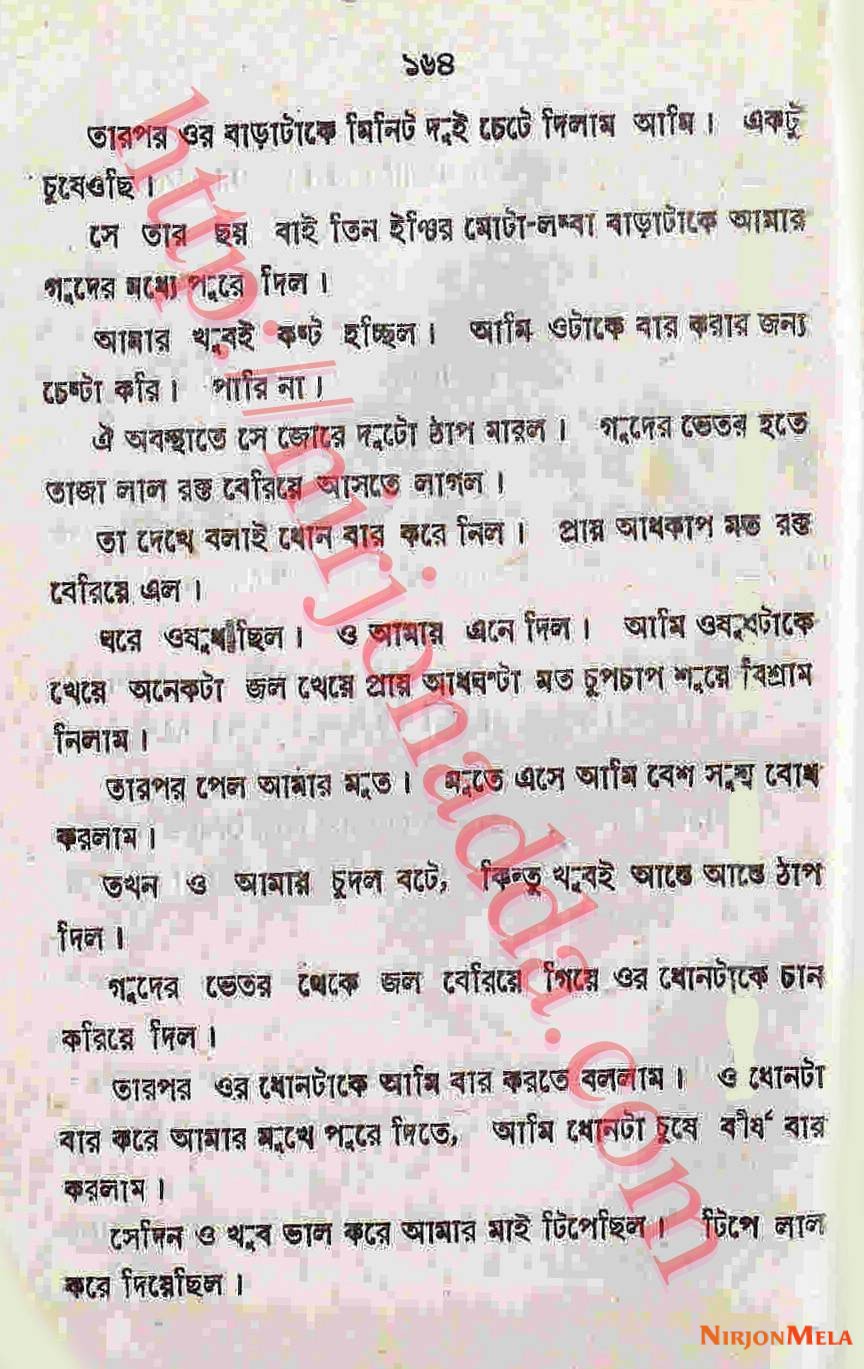 ১৬৪
তারপর ওর বাড়াটাকে মিনিট দুই চেটে দিলাম আমি। একটু
চুষেওছি।
সে তার ছয় বাই তিন ইঞ্চির মোটা-লম্বা বাড়াটাকে আমার
গুদের মধ্যে পুরে দিল।
আমার খুবই কষ্ট হচ্ছিল। আমি ওটাকে বার করার জন্য
চেষ্টা করি। পারি না।
ঐ অবস্থাতে সে জোরে দুটো ঠাপ মারল। গুদের ভেতর হতে
তাজা লাল রক্ত বেরিয়ে আসতে লাগল।
তা দেখে বলাই ধোন বার করে নিল। প্রায় আধকাপ মত রক্ত
বেরিয়ে এল।
ঘরে ওষুধ ছিল। ও আমায় এনে দিল। আমি ওষুধটাকে
খেয়ে অনেকটা জল খেয়ে প্রায় আধঘণ্টা মত চুপচাপ শুয়ে বিশ্রাম
নিলাম।
তারপর পেল আমার মুত। মুতে এসে আমি বেশ সুস্থ বোধ
করলাম।
তখন ও আমায় চুদল বটে, কিন্তু খুবই আস্তে আস্তে ঠাপ
দিল।
গুদের ভেতর থেকে জল বেরিয়ে গিয়ে ওর ধোনটাকে চান
করিয়ে দিল।
তারপর ওর ধোনটাকে আমি বার করতে বললাম। ও ধোনটা
বার করে আমার মুখে পুরে দিতে, আমি ধোনটা চুষে বীর্য বার
করলাম।
সেদিন ও খুব ভাল করে আমার মাই টিপেছিল। টিপে লাল
করে দিয়েছিল।
http://nirjonadda.com
NIRJONMELA